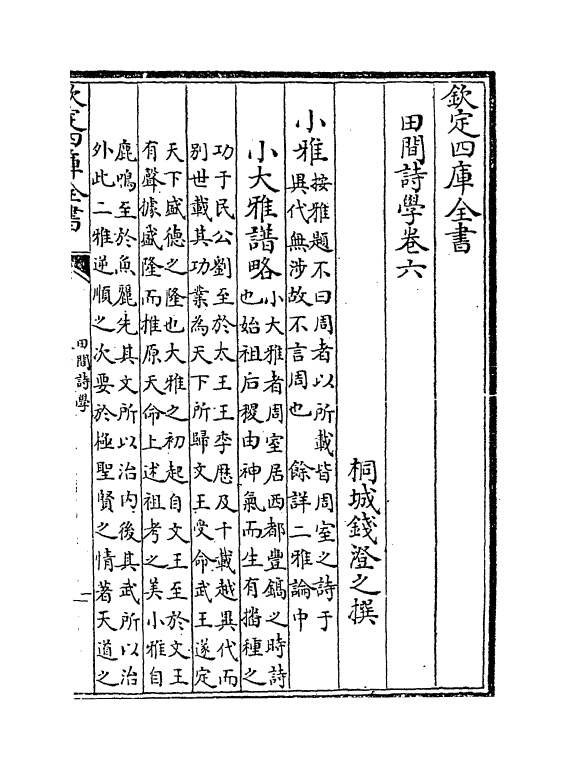 欽定四庫全書
田間詩學卷六
桐城錢澄之撰
小雅按雅題不曰周者以所載皆周室之詩于
異代無涉故不言周也　餘詳二雅論中
小大雅譜略小大雅者周室居西都豐鎬之時詩
也始祖后稷由神氣而生有播種之
功于民公劉至於太王王季歷及千載越異代而
别世載其功業為天下所歸文王受命武王遂定
天下盛德之隆也大雅之初起自文王至於文王
有聲據盛隆而推原天命上述祖考之美小雅自
鹿鳴至於魚麗先其文所以治内後其武所以治
外此二雅逆順之次要於極聖賢之情著天道之
欽定四庫全書
田間詩學
一